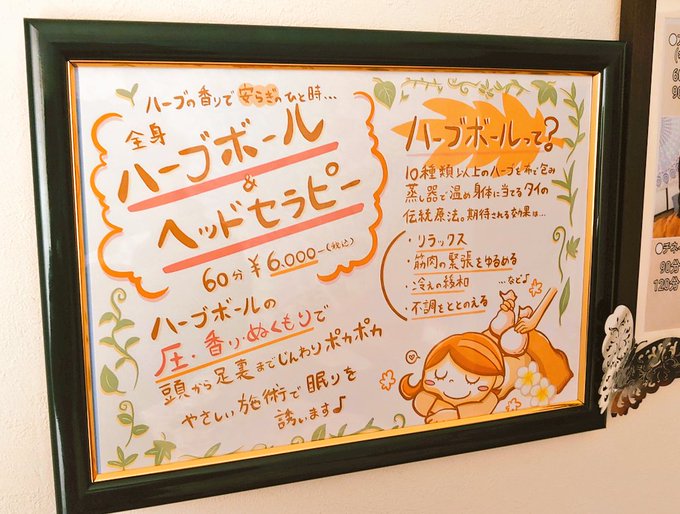 ハーブの香りで安らぎのひと時...
全身
ハーブボール
&
ヘッドセラピー
60分 ¥6,000-(税込)
ハーブボールの
圧・香り・ぬくもりで
頭から足裏までじんわりポカポカ
やさしい施術で眠りを
誘います♪
ハーブボールって?
10種類以上のハーブを布で包み
蒸し器で温め身体に当てるタイの
伝統療法。期待される効果は...
・リラックス
・筋肉の緊張をゆるめる
・冷えの緩和
・不調をととのえる
...など♪
60
90
●チネ
90分
120分